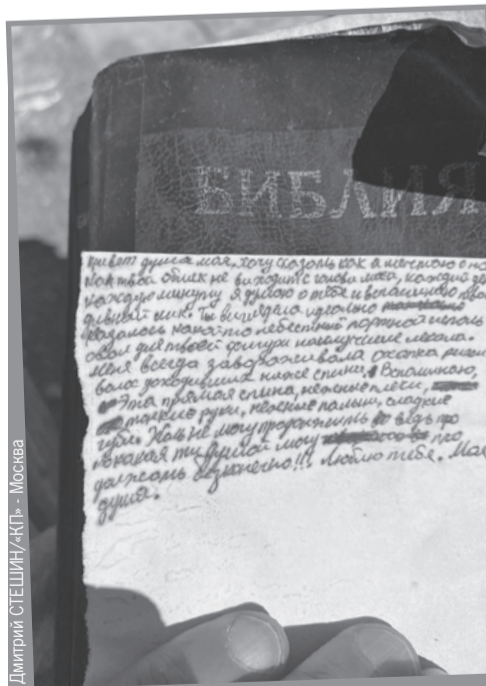 БИБЛИЯ
привет душа мая, хочу сказать как я мечтаю о
как твой облик не виходит с головы маей, каждий
каждую минуту я думаю о тебе и вспоминаю
дивний лик. Ты виглядела идеально
казалось какой то небесний портной
овал для твоей фигури наилучшие лекала.
меня всегда завораживала охапка
волос доходивших ниже спини. Вспоминаю,
Эта прямая спина, нежные плечи,
тонкие руки, нежные пальци, сладкие
губи. Жаль не могу продолжить ведь про
какая ти думай могу про
должать безконечно!!! Люблю тебя. Мая
душа.
Дмитрий СТЕШИН/«КП» - Москва